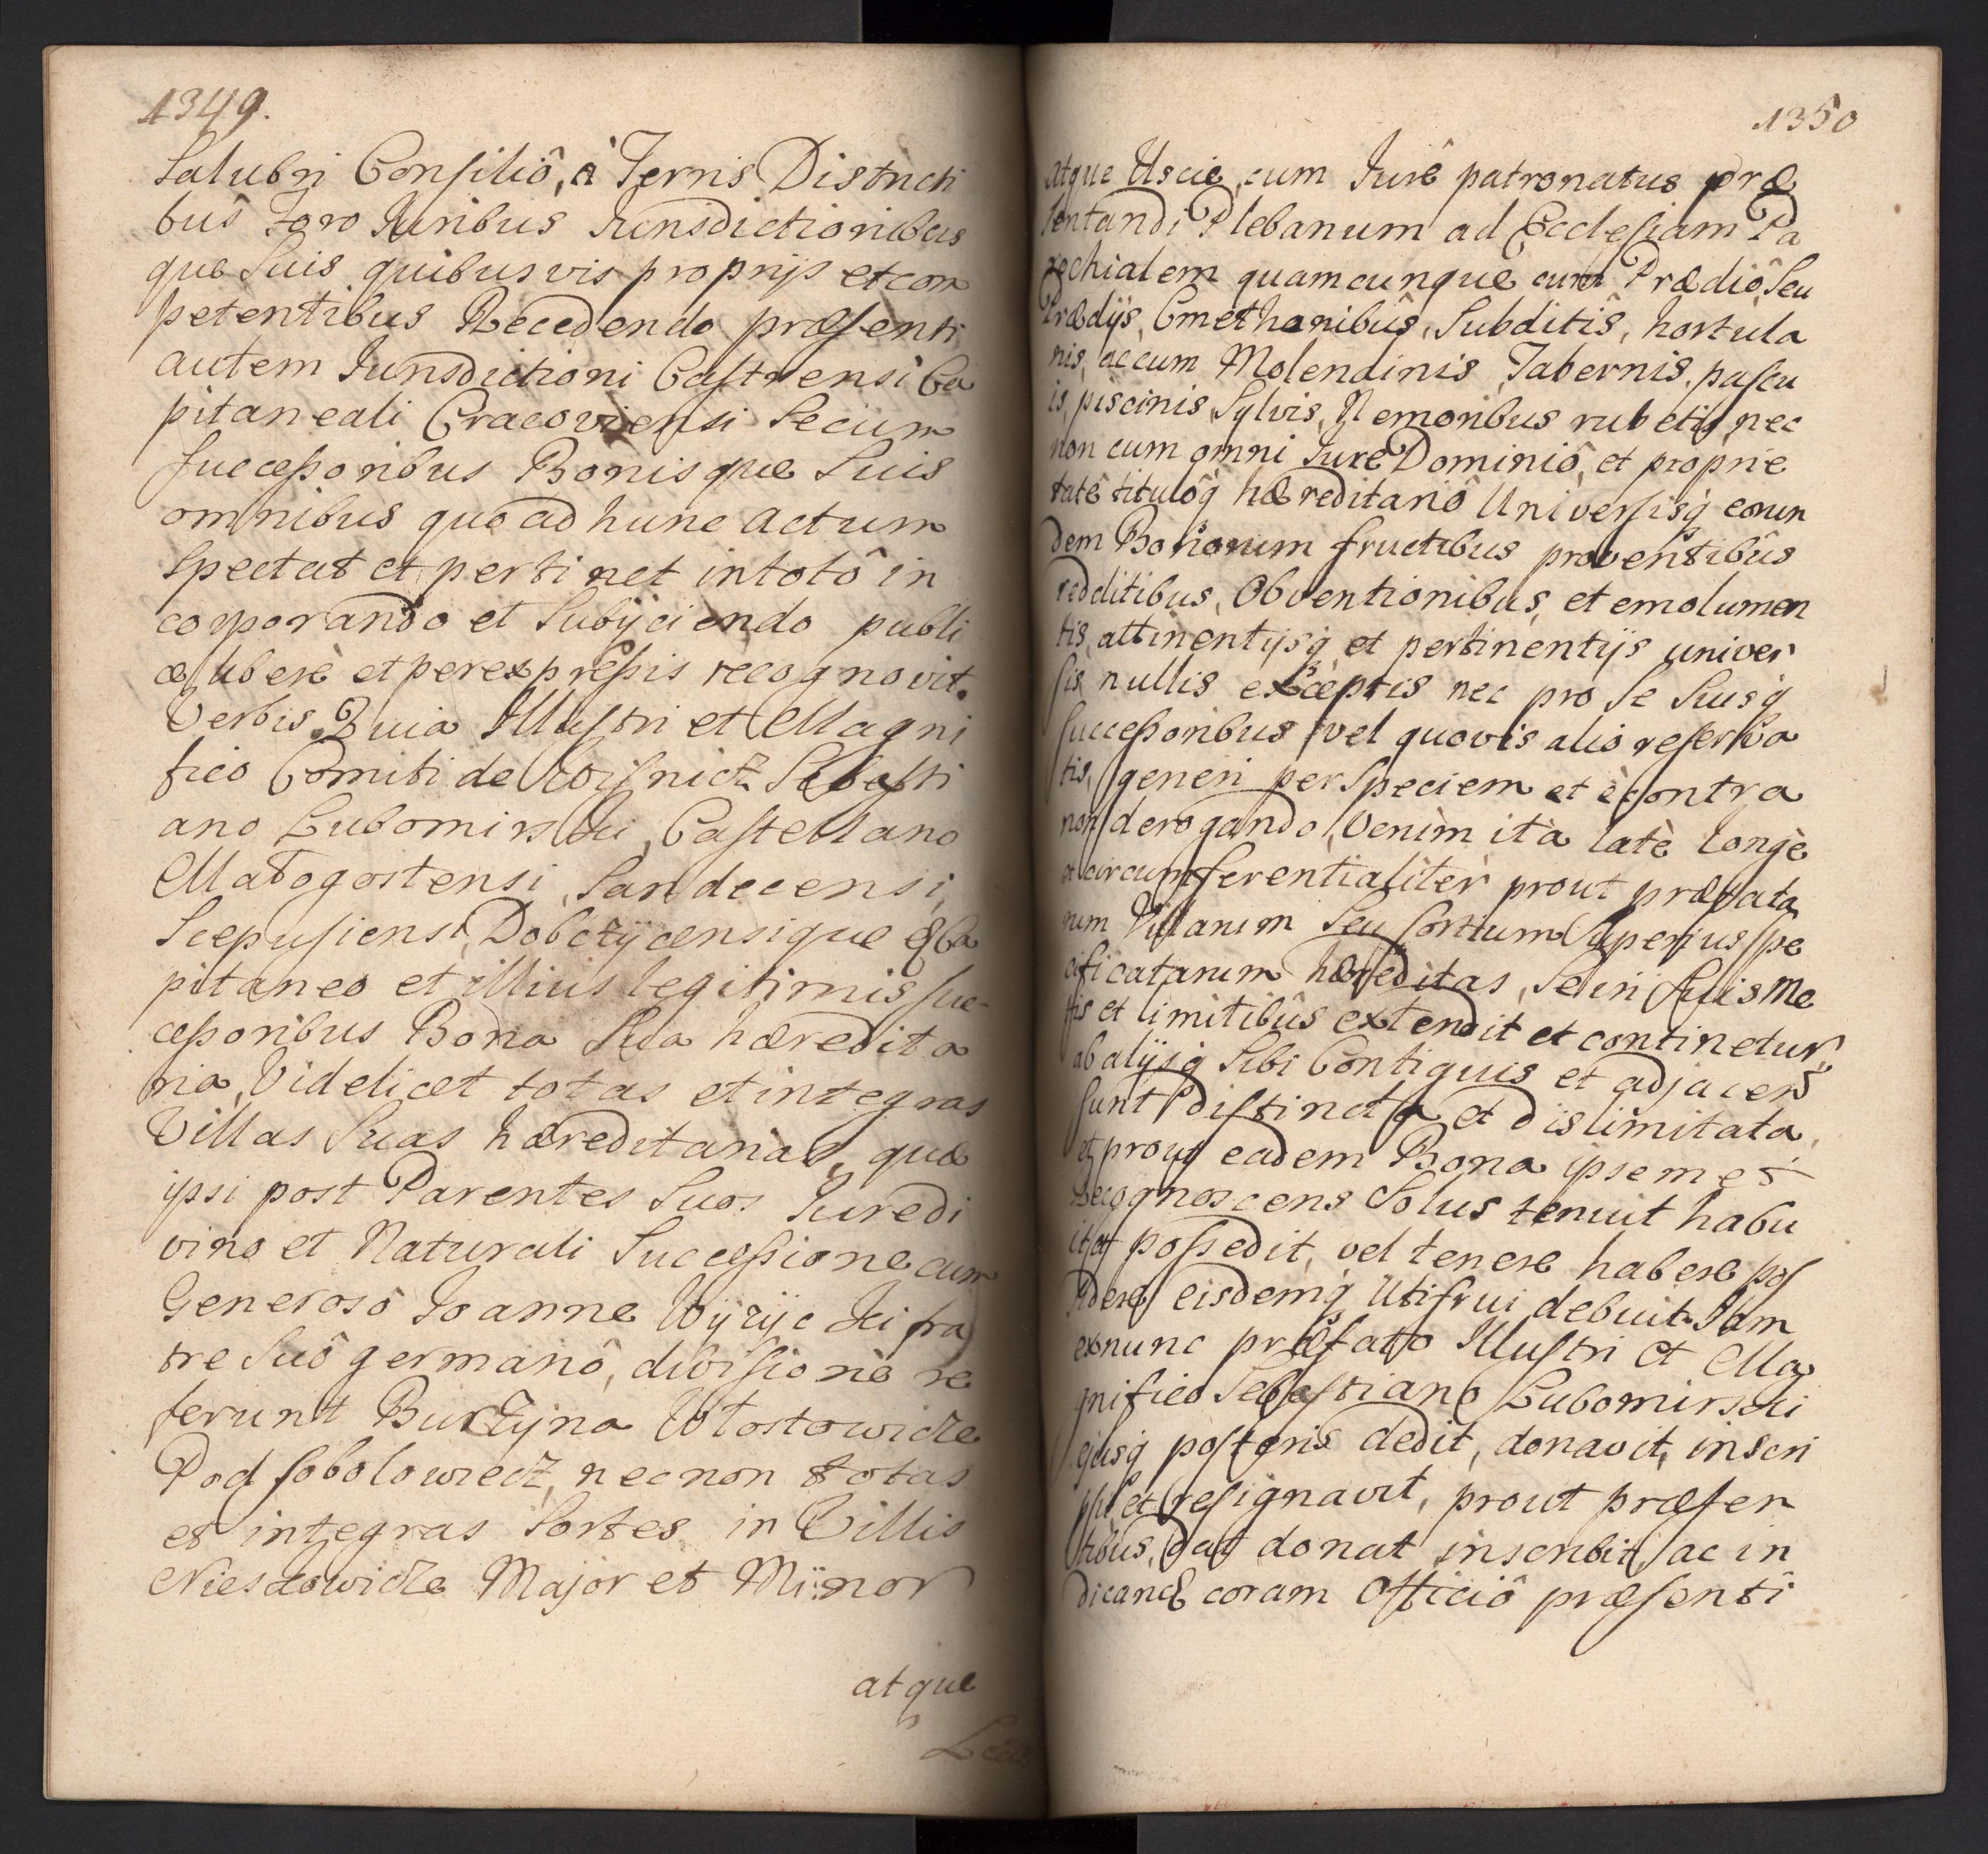 1349.
Salubri Consiliô, à Terris Districti
bus Foro Iuribus Iurisdictionibus
que Suis quibusvis proprijs et com
petentibus Recedendo præsenti
autem Iurisdictioni Castrensi Ca
pitaneali Cracoviensi Se cum
successoribus Bonisque Suis
omnibus quo ad hunc actum
spectat et pertinet in totô in
corporando et Subijciendo publi
ce liberè et per expressis recognovit
Verbis. Quia Illustri et Magni
fico Comiti de Wisnicz Sebasti
ano Lubomirski, Castellano
Małogostensi, Sandecensi,
Scepusiensi, Dobczÿcensique & Ca
pitaneo et illius legitimis suc-
cessoribus Bona Sua hæredita
ria, Videlicet totas et integras
Villas Suas hæreditarias, quæ
ipsi post Parentes Suos Iure di
vino et Naturali Successione cum
Generosô Ioanne Wÿzÿcki fra
tre Suô germanô, divisione re
ferunt Burzÿna Włostowicze
Pod sobolowiecz, nec non totas
et integras Sortes in Villis
Nieszkowicze Major et Minor
atque
1350
atque Uscie, cum Iurê patronatus præ
sentandi Plebanum ad Ecclesiam Pa
rochialem quamcunque cum Prædiô Seu
Prædijs, Cmethonibûs, Subditîs, hortula
nis, ac cum Molendinis, Tabernis, pascu
is, piscinis, Sylvis, Nemoribus rubetis, nec
non cum omni Iure Dominiô, et proprie
tatê titulôq hæreditariô Universisq eorun
dem Bonorum fructibus proventibûs
redditibus, Obventionibus, et emolumen
tis, attinentijsq et pertinentijs univer
sis nullis exceptis nec pro Se Suisq
Successoribus, vel quovis alio reserva
tis, generi per Speciem et è contra
non derogando, Verùm ità latè longè
et circumferentialitèr prout præfata
rum Villarum Seu Sortium superius spe
cificatarum hæreditas, Se in Suis Me
tis et limitibûs extendit et continetur
ab alijsq Sibi Contiguis et adjacen
Sunt distincta et dislimitata,
et prout eadem Bona ipsemet
Recognoscens Solus tenuit habu
it et possedit, vel tenere habere pos
sidere eisdemq Utifrui debuit. Iam
ex nunc præfato Illustri et Ma
gnifico Sebastiano Lubomirski
ejusq posteris dedit, donavit, inscri
psit et resignavit, prout præsen
tibus, dat donat inscribit, ac in
dicand coram Officiô præsenti